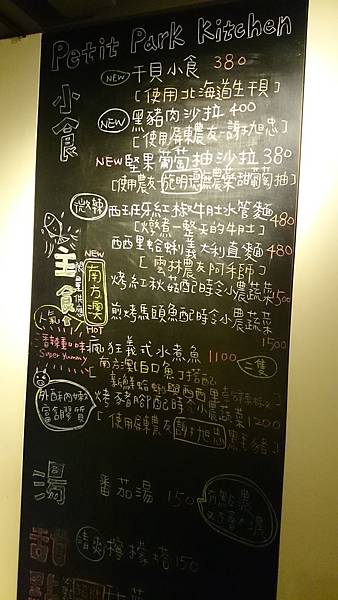 Petit Park Kitchen
小食
NEW 干貝小食 380
[使用北海道生干貝]
NEW 黑豬肉沙拉 400
[使用屏東農友-謝旭忠]
NEW 堅果葡萄柚沙拉 380
[使用農友-施明憲無農藥甜葡萄柚]
微辣 西班牙紅椒牛肚水管麵 480
[燉煮一整天的牛肚]
西西里蛤蜊義大利直麵 480
[雲林農友阿利師]
主食
NEW
南方澳
烤紅秋菇配時令小農蔬菜 500
煎烤馬頭魚配時令小農蔬菜
1500
人氣
HOT
Super Yummy
瘋狂義式水煮魚 1100 二隻
烤豬腳配時令小農蔬菜 1200
[使用屏東農友謝旭忠黑毛豬]
外酥內嫩
富膠質
湯
番茄湯 150
有點濃
又不會太濃
甜
清爽檸檬塔 150
點